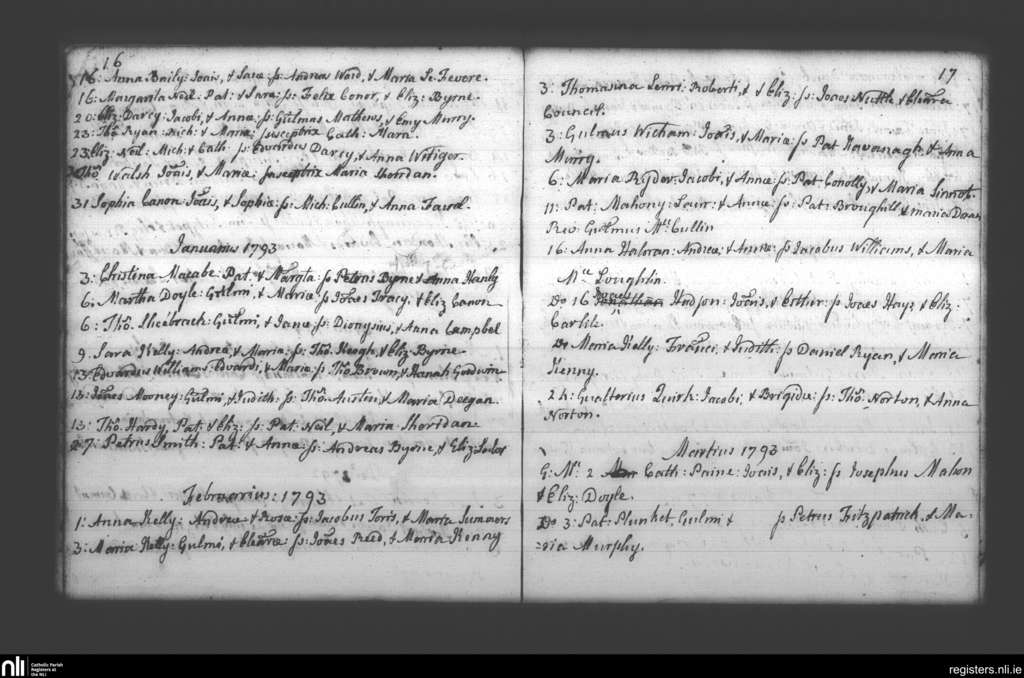 16
16: Anna Baily: Joais, & Sara: sp: Andrea Ward, & Maria Le Fevere.
16: Margarita Neil: Pat: & Sara: sp: Felix Conor, & Eliz: Byrne.
20: Eliz: Darcy: Jacobi, & Anna: sp: Gulmus Mathews, & Emy Murry.
23: Tho: Ryan: Rich: & Maria: susceptrix Cath: Mara.
23: Eliz: Neil: Mich: & Cath: sp: Edwardus Darcy, & Anna
Tho: Walsh Joais, & Maria: susceptrix Maria Shoridan.
31 Sophia Canon Joais, & Sophia: sp: Mich: Cullin, & Anna
Januarius 1793
3: Christina Macabe: Pat: & Margta: sp Petrus Byrne & Anna Hanly
6. Martha Doyle: Gulmi, & Maria: sp Joaes Tracy, & Eliz Canon
6: Tho: Gulmi, & Jane: sp: Dionysius, & Anna Campbel
9. Sara Kelly: Andrea, & Maria: sp: Tho: Keogh, & Eliz: Byrne
13: Edwardus Williams: Edvardi, & Maria: sp: Tho: Brown, & Hanah Goodwin
13: Joaes Mooney: Gulmi, & Judith: sp: Tho: Austin, & Maria Deegan.
13: Tho: Hardy, Pat: & Eliz: sp: Pat: Neil, & Maria Shoridan
27: Petrus Smith: Pat: & Anna: sp: Andreas Byrne, & Eliz:
Februarius: 1793
1: Anna Kelly: Andrea & Rosa: sp: Jacobus & Maria Summers
3: Maria Kelly: Gulmi, & Eleanra: sp: Joaes Reed, & Maria Kenny
17
3: Thomasina Robarti, & Eliz: sp: Joaes Nuttle & Eleanra
Council.
3: Gulmus Wicham: Joais, & Maria: sp Pat Kavanagh & Anna
Murry.
6: Maria Ryder: Jacobi, & Anna: sp: Pat Conolly, & Maria Sinnot.
11: Pat: Mahony: & Anna: sp: Pat: Broughill & Maria Doran
Rev: Gulmus Mc Cullin
16: Anna Haloran: Andrea, & Anna: sp Jacobus Williams, & Maria
Mc Loughlin.
Do 16 Jonathan Hodson: Joais, & Esthir: sp Joaes Hays & Eliz:
Carlile.
Do Maria Kelly: Franci, & Judith: sp Daniel Ryan, & Maria
Kenny.
24: Gualterius Quirk: Jacobi, & Brigida: sp: Tho: Norton, & Anna
Norton.
Martius 1793
G: Mr: 2 Cath: Paine: Joais, & Eliz: sp Josephus Mahon
& Eliz: Doyle.
Do 3: Pat: Plunket, Gulmi & sp Petrus Fitzpatrick, & Ma-
-ria Murphy.
nli
Catholic Parish
Registers at
the NLI
registers.nli.ie